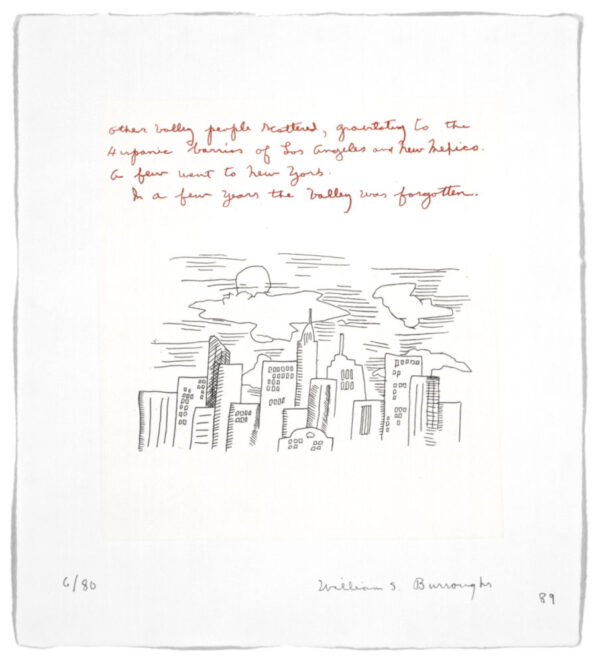 other valley people scattered, gravitating to the
Hispanic barrios of Los Angeles and New Mexico.
A few went to New York.
In a few years the valley was forgotten.
6/80
William S. Burroughs
89